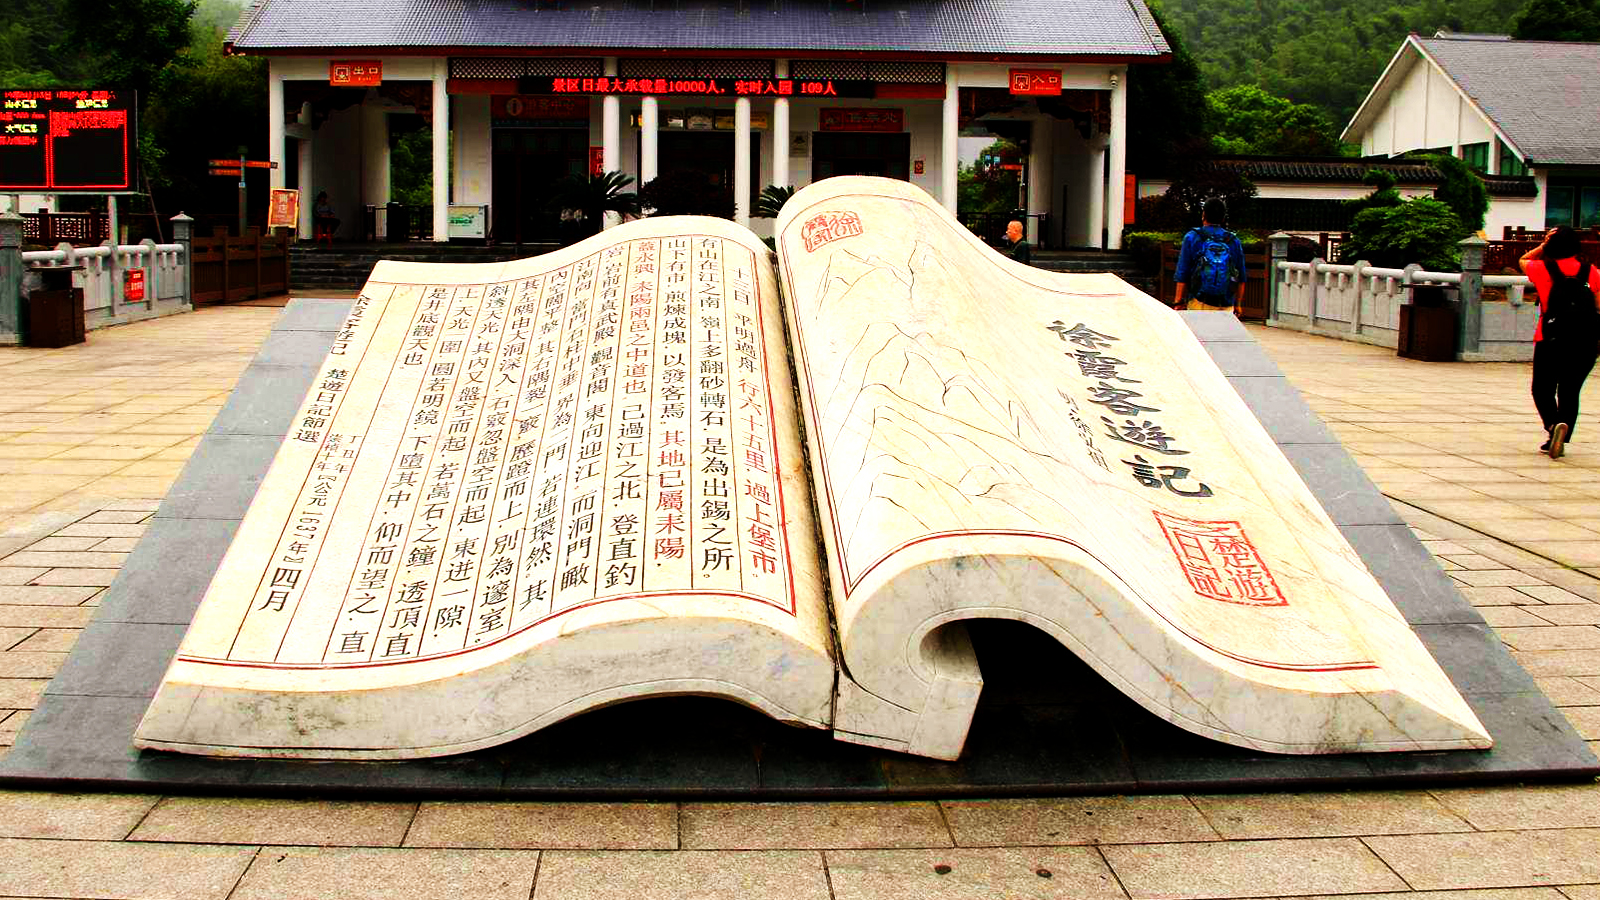 出口
景区日最大承载量10000人，实时入园 109人
入口
游客中心
徐霞客遊記
楚遊
日記
十三日 平明過舟 行六十五里 過上堡市。
有山在江之南 嶺上多翻砂轉石 是為出錫之所。
山下有市 煎煉成塊 以發客焉 其地已屬耒陽．
蓋永興 耒陽兩邑之中道也 已過江之北 登直釣
岩 岩前有真武殿 觀音閣 東向迎江 而洞門瞰
江南向 當門石柱中垂 界為二門 若連環然 其
內空闊平整 其右隅裂一竅 歷蹬而上 別為邃室。
其左隅由大洞深入 石竅忽盤空而起 東迸一隙
斜透天光 其內又盤空而起 若萬石之鐘 透頂直
上 天光一圍 圓若明鏡 下墮其中 仰而望之 直
是井底觀天也
楚遊日記節選
丁丑年
崇禎十年『公元1637年』四月